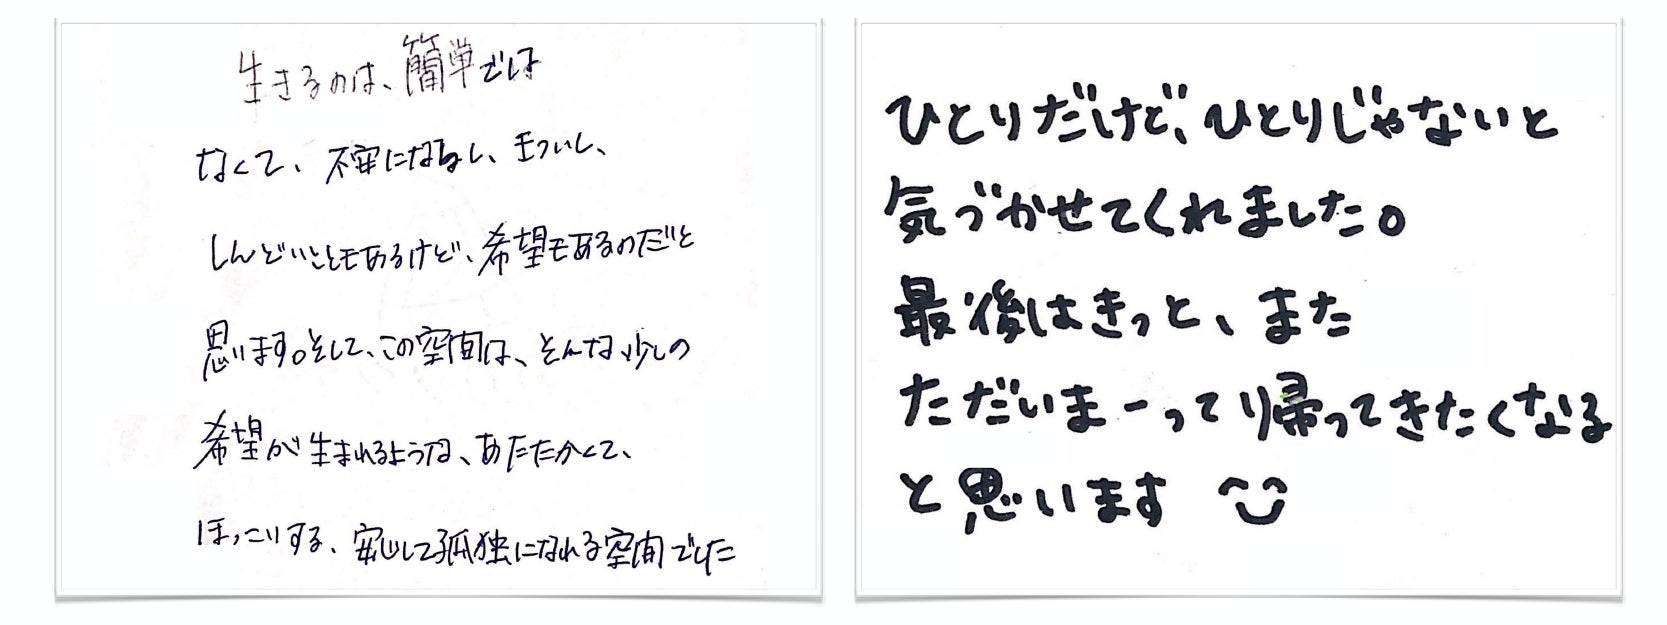 生きるのは、簡単では
なくて、不安になるし、きついし、
しんどいこともあるけど、希望もあるのだと
思います。そして、この空間は、そんな少しの
希望が生まれるような、あたたかくて、
ほっこりする、安心して孤独になれる空間でした
ひとりだけど、ひとりじゃないと
気づかせてくれました。
最後はきっと、また
ただいまーって帰ってきたくなる
と思います